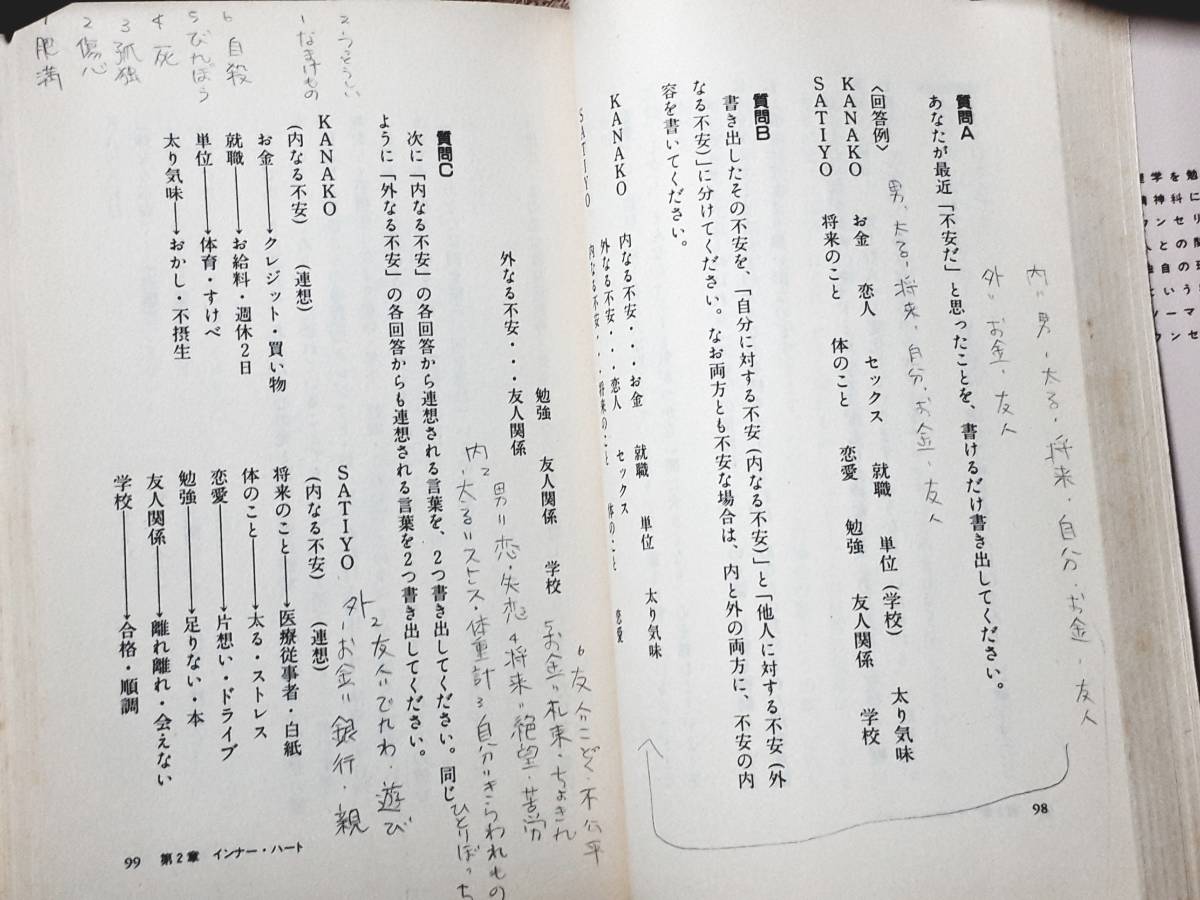 質問A
あなたが最近「不安だ」と思ったことを、書けるだけ書き出してください。
〈回答例〉
KANAKO お金 恋人 セックス 就職 単位(学校) 太り気味
SATIYO 将来のこと 体のこと 恋愛 勉強 友人関係 学校
質問B
書き出したその不安を、「自分に対する不安(内なる不安)」と「他人に対する不安(外
なる不安)」に分けてください。なお両方とも不安な場合は、内と外の両方に、不安の内
容を書いてください。
KANAKO 内なる不安・・・お金 就職 単位 太り気味
外なる不安・・・恋人 セックス
SATIYO 内なる不安・・・将来のこと 体のこと 恋愛
98
内〃男、太る、将来、自分、お金、友人
外〃お金、友人
男、太る、将来、自分、お金、友人
勉強 友人関係 学校
外なる不安・・・友人関係
質問C
次に「内なる不安」の各回答から連想される言葉を、2つ書き出してください。同じ
ように「外なる不安」の各回答からも連想される言葉を2つ書き出してください。
KANAKO
(内なる不安) (連想)
お金→クレジット・買い物
就職→お給料・週休2日
単位→体育・すけべ
太り気味→おかし・不摂生
SATIYO
(内なる不安) (連想)
将来のこと→医療従事者・白紙
体のこと→太る・ストレス
恋愛→片想い・ドライブ
勉強→足りない・本
友人関係→離れ離れ・会えない
学校→合格・順調
99 第2章 インナー・ハート
6友人=こどく・不公平
5お金〃札束・ちょきん
男〃恋・失恋 4将来〃絶望・苦労
太る〃ストレス・体重計 3自分〃きらわれもの
ひとりぼっち
外2友人〃でんわ・遊び
お金〃銀行・親
2うっそうしい
1なまけもの
6自殺
5びんぼう
4死
3孤独
2傷心
1肥満